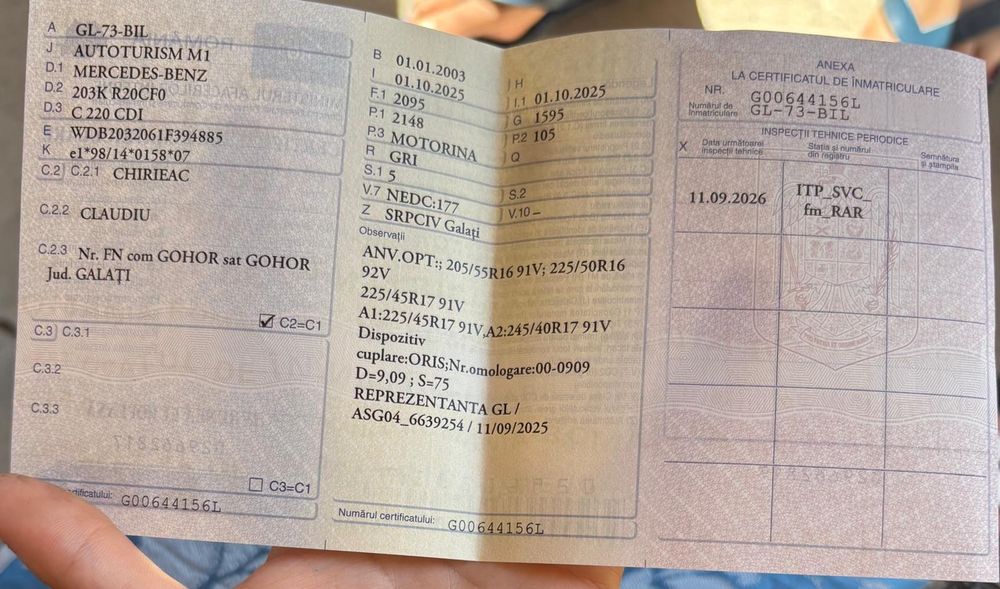 A GL-73-BIL
J AUTOTURISM M1
D.1 MERCEDES-BENZ
D.2 203K R20CF0
D.3 C 220 CDI
E WDB2032061F394885
K e1*98/14*0158*07
C.2 C.2.1 CHIRIEAC
C.2.2 CLAUDIU
C.2.3 Nr. FN com GOHOR sat GOHOR
Jud. GALAȚI
C2=C1
C.3 C.3.1
C.3.2
C.3.3
C3=C1
certificatului: G00644156L
B 01.01.2003
H
I 01.10.2025
I.1 01.10.2025
F.1 2095
G 1595
P.1 2148
P.2 105
P.3 MOTORINA
Q
R GRI
S.1 5
S.2
V.7 NEDC:177
V.10 –
Z SRPCIV Galați
Observații
ANV.OPT:; 205/55R16 91V; 225/50R16
92V
225/45R17 91V
A1:225/45R17 91V,A2:245/40R17 91V
Dispozitiv
cuplare:ORIS;Nr.omologare:00-0909
D=9,09 ; S=75
REPREZENTANTA GL /
ASG04_6639254 / 11/09/2025
Numărul certificatului: G00644156L
ANEXA
LA CERTIFICATUL DE ÎNMATRICULARE
NR. G00644156L
Numărul de
înmatriculare GL-73-BIL
INSPECȚII TEHNICE PERIODICE
X Data următoarei
inspecții tehnice
Stația și numărul
din registru
Semnătura
și ștampila
11.09.2026
ITP_SVC_
fm_RAR